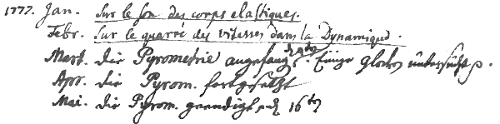 1777. Jan. Sur le son des corps elastiques.
Febr. Sur le quarré des vitesses dans la Dynamique.
Mert. die Pyrometrie angefang. d 9ten Einige Glocken untersucht p.
Apr. die Pyrom. fortgesetzt
Mai. die Pyrom. geendigt d 16ten